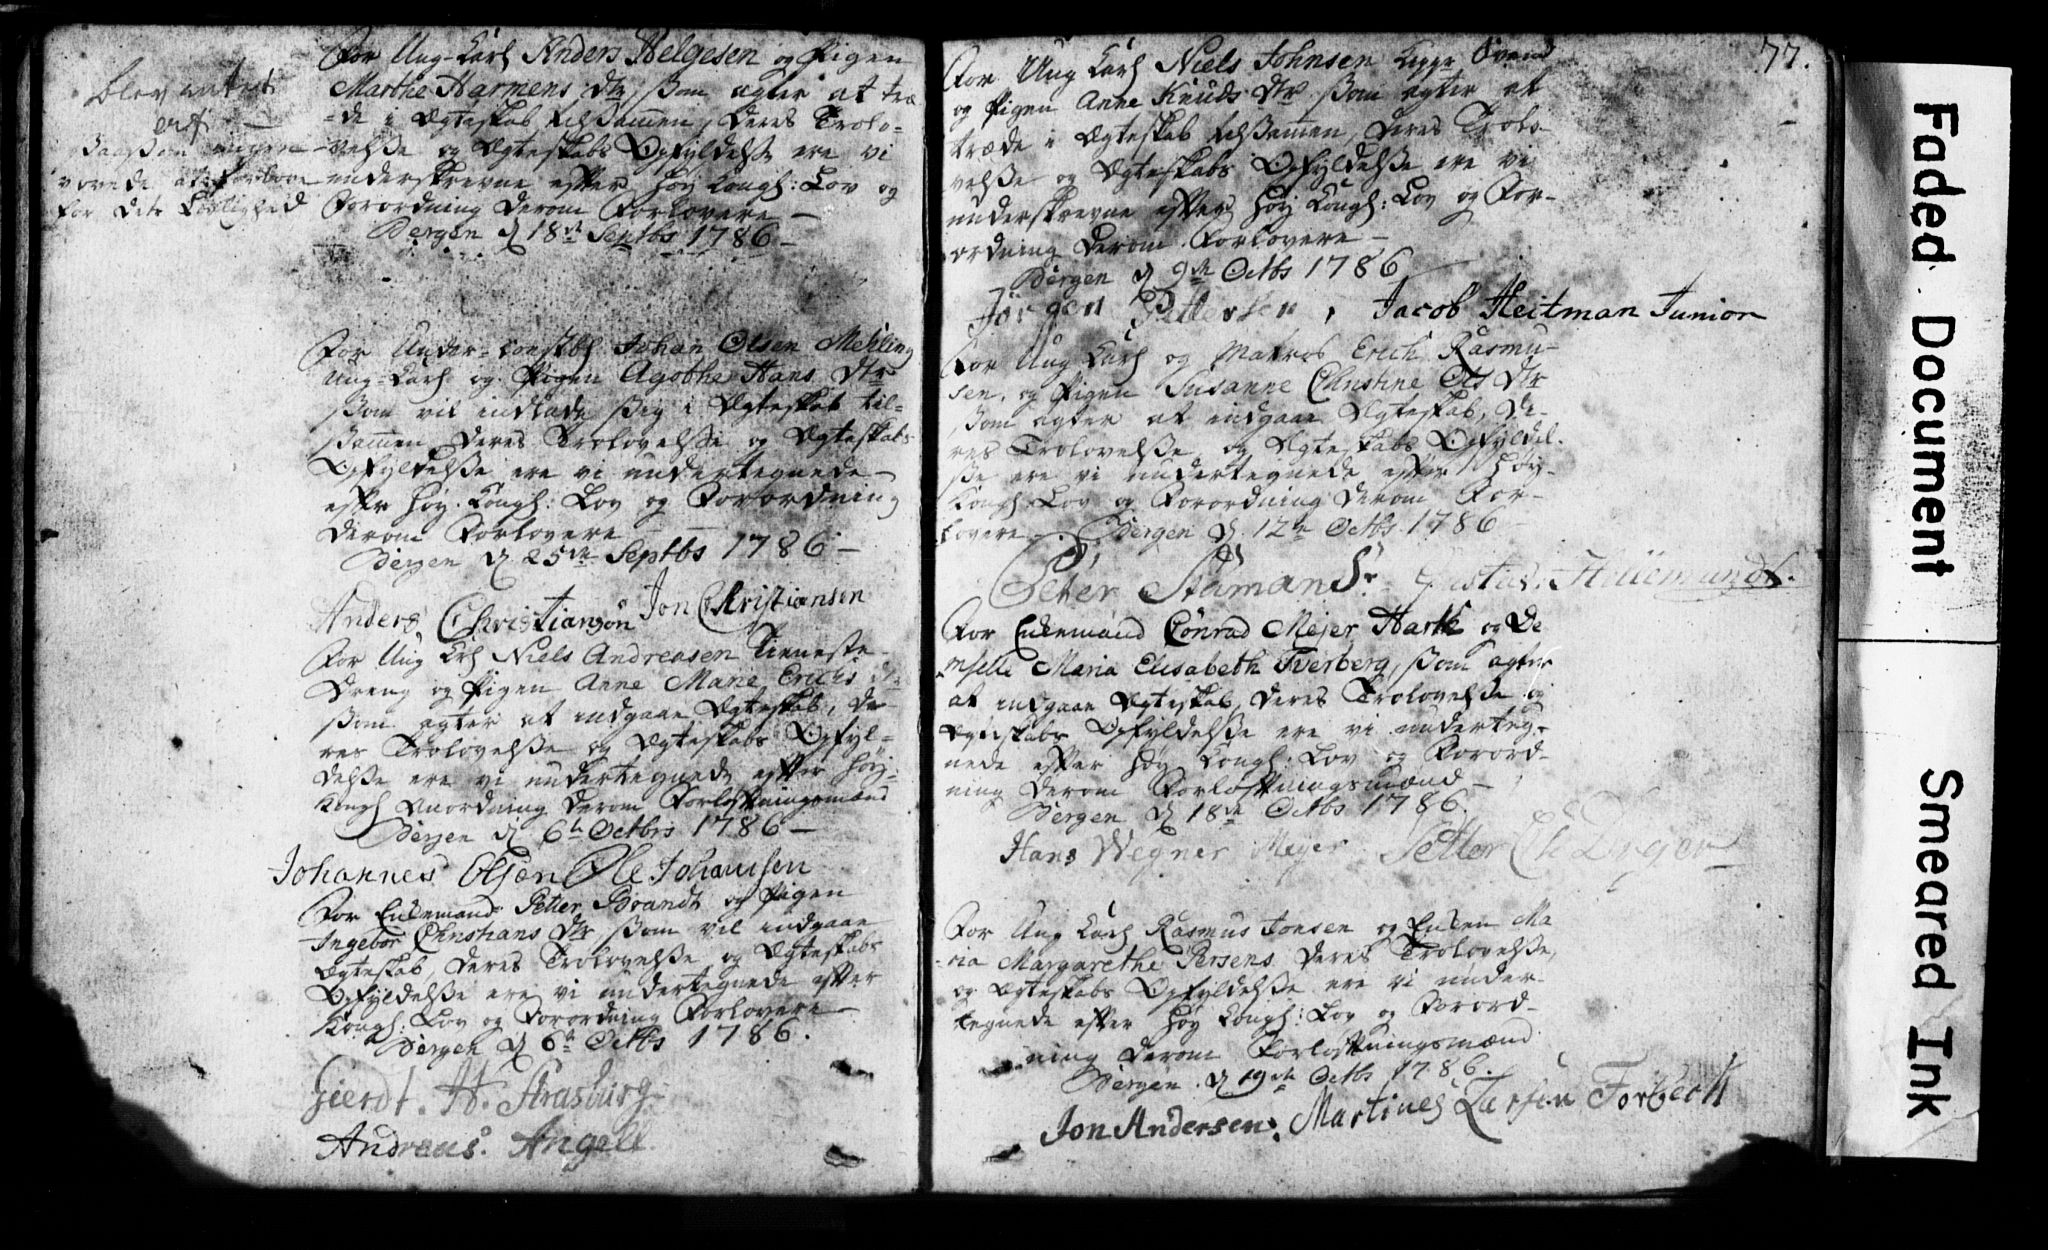 For Ung-Karl Anders Helgesen og Pigen
Marthe Harmens dtr, som agter at træ-
de i Ægteskab tilsamen, deres Trolo-
velsse og Ægteskabs Opfyldelse ere vi
underskrevne efter høy Kongl: Lov og
Forordning derom Forlovere —
Bergen d 18de Septbs 1786 —
blev
for dets Lovlighed
For Under- Johan Olsen Mehling
Ung-Karl og Pigen Agothe Hans dtr
som vil indlade sig i Ægteskab til-
samen, deres Trolovelsse og Ægteskabs
Opfyldelsse ere vi undertegnede
efter høy. Kongl: Lov og Forordning
derom Forlovere —
Bergen d 25de Septbs 1786 —
Anders Christiansøn Jon Christiansen
For Ung Krl Niels Andreasen tieneste-
dreng og Pigen Anne Marie Erichs dr
som agter at indgaae Ægteskab, de-
res Trolovelsse og Ægteskabs Opfyl-
delsse ere vi undertegnede efter høy-
Kongl Anordning derom Forlovtningsmænd
Bergen d 6te Octbris 1786 —
Johannes Olsen Ole Johansen
For Enkemand Petter Brandt og Pigen
Ingebor Christians dtr som vil indgaae
Ægteskab, deres Trolovelsse og Ægteskabs
Opfyldelsse ere vi undertegnede efter
Kongl: Lov og Forordning Forlovere —
Bergen d 6te Octbs 1786.
Gierdt. H. Strasburg
Andreas. Angell
77.
For Ung Karl Niels Johnsen
og Pigen Anne Knuds dtr som agter at
træde i Ægteskab tilsamen, deres Trolo-
velsse og Ægteskabs Opfyldelsse ere vi
underskrevne efter høy Kongl: Lov og For-
ordning derom Forlovere —
Bergen d 9de Octbs 1786
Jørgen Pettersen, Jacob Heitman Junior
For Ung Karl og Matros Erich Rasmu-
sen, og Pigen Susanne Christine Ols dtr
som agter at indgaae Ægteskab, de-
res Trolovelsse og Ægteskabs Opfyldel-
sse ere vi undertegnede efter høy-
Kongl Lov og Forordning derom For-
lovere — Bergen d 12te Octbs 1786
Peter Staman Sr. Gustav.
For Enkemand Conrad Mejer Hartk og De
mselle Maria Elisabeth Tverberg, som agter
at indgaae Ægteskab, deres Trolovelsse og
Ægteskabs Opfyldelsse ere vi underteg-
nede efter høy Kongl: Lov og Forord-
ning derom Forlovtningsmænd —
Bergen d 18de Octbs 1786.
Hans Wegner Mejer Petter
For Ung Karl Rasmus Jonsen og Enken Ma
ria Margarethe Persens deres Trolovelsse
og Ægteskabs Opfyldelsse ere vi under-
tegnede efter høy Kongl: Lov og Forord-
ning derom Forlovtningsmænd
Bergen d 19de Octbs 1786.
Jon Andersen. Martines Larsen Forbech
Faded Document
Smeared Ink